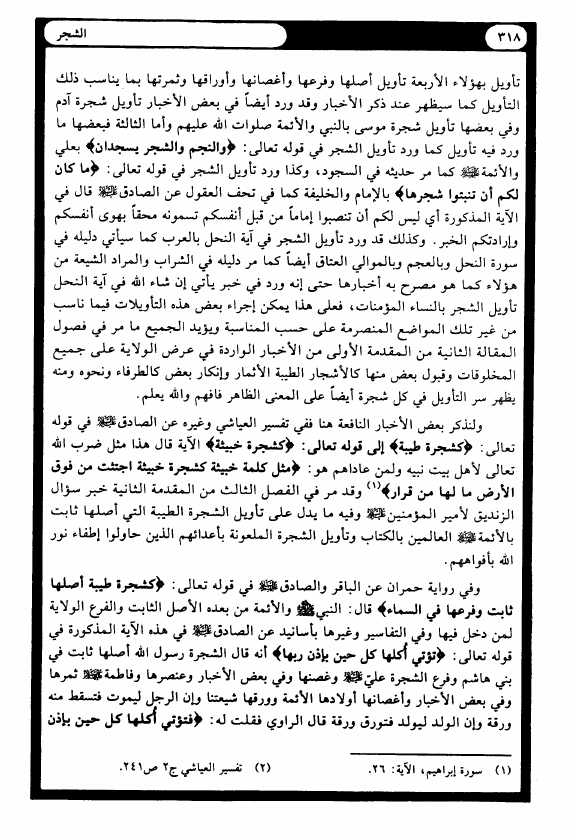 ٣١٨
الشجر
تأويل بهؤلاء الأربعة تأويل أصلها وفرعها وأغصانها وأوراقها وثمرتها بما يناسب ذلك
التأويل كما سيظهر عند ذكر الأخبار وقد ورد أيضاً في بعض الأخبار تأويل شجرة آدم
وفي بعضها تأويل شجرة موسى بالنبي والأئمة صلوات الله عليهم وأما الثالثة فبعضها ما
ورد فيه تأويل كما ورد تأويل الشجر في قوله تعالى: ﴿والنجم والشجر يسجدان﴾ بعلي
والأئمة ﷺ كما مر حديثه في السجود، وكذا ورد تأويل الشجر في قوله تعالى: ﴿ما كان
لكم أن تنبتوا شجرها﴾ بالإمام والخليفة كما في تحف العقول عن الصادق ﷺ قال في
الآية المذكورة أي ليس لكم أن تنصبوا إماماً من قبل أنفسكم تسمونه محقاً بهوى أنفسكم
وإرادتكم الخبر. وكذلك قد ورد تأويل الشجر في آية النحل بالعرب كما سيأتي دليله في
سورة النحل وبالعجم وبالموالي العتاق أيضاً كما مر دليله في الشراب والمراد الشيعة من
هؤلاء كما هو مصرح به أخبارها حتى إنه ورد في خبر يأتي إن شاء الله في آية النحل
تأويل الشجر بالنساء المؤمنات، فعلى هذا يمكن إجراء بعض هذه التأويلات فيما ناسب
من غير تلك المواضع المنصرمة على حسب المناسبة ويؤيد الجميع ما مر في فصول
المقالة الثانية من المقدمة الأولى من الأخبار الواردة في عرض الولاية على جميع
المخلوقات وقبول بعض منها كالأشجار الطيبة الأثمار وإنكار بعض كالطرفاء ونحوه ومنه
يظهر سر التأويل في كل شجرة أيضاً على المعنى الظاهر فافهم والله يعلم.
ولنذكر بعض الأخبار النافعة هنا ففي تفسير العياشي وغيره عن الصادق ﷺ في قوله
تعالى: ﴿كشجرة طيبة﴾ إلى قوله تعالى: ﴿كشجرة خبيثة﴾ الآية قال هذا مثل ضرب الله
تعالى لأهل بيت نبيه ولمن عاداهم هو: ﴿مثل كلمة خبيثة كشجرة خبيثة اجتثت من فوق
الأرض ما لها من قرار﴾(١) وقد مر في الفصل الثالث من المقدمة الثانية خبر سؤال
الزنديق لأمير المؤمنين ﷺ وفيه ما يدل على تأويل الشجرة الطيبة التي أصلها ثابت
بالأئمة ﷺ العالمين بالكتاب وتأويل الشجرة الملعونة بأعدائهم الذين حاولوا إطفاء نور
الله بأفواههم.
وفي رواية حمران عن الباقر والصادق ﷺ في قوله تعالى: ﴿كشجرة طيبة أصلها
ثابت وفرعها في السماء﴾ قال: النبي ﷺ والأئمة من بعده الأصل الثابت والفرع الولاية
لمن دخل فيها وفي التفاسير وغيرها بأسانيد عن الصادق ﷺ في هذه الآية المذكورة في
قوله تعالى: ﴿تؤتي أُكلها كل حين بإذن ربها﴾ أنه قال الشجرة رسول الله أصلها ثابت في
بني هاشم وفرع الشجرة عليّ ﷺ وغصنها وفي بعض الأخبار وعنصرها وفاطمة ﷺ ثمرها
وفي بعض الأخبار وأغصانها أولادها الأئمة وورقها شيعتنا وإن الرجل ليموت فتسقط منه
ورقة وإن الولد ليولد فتورق ورقة قال الراوي فقلت له: ﴿فتؤتي أُكلها كل حين بإذن
(١) سورة إبراهيم، الآية: ٢٦.
(٢) تفسير العياشي ج٢ ص٢٤١.